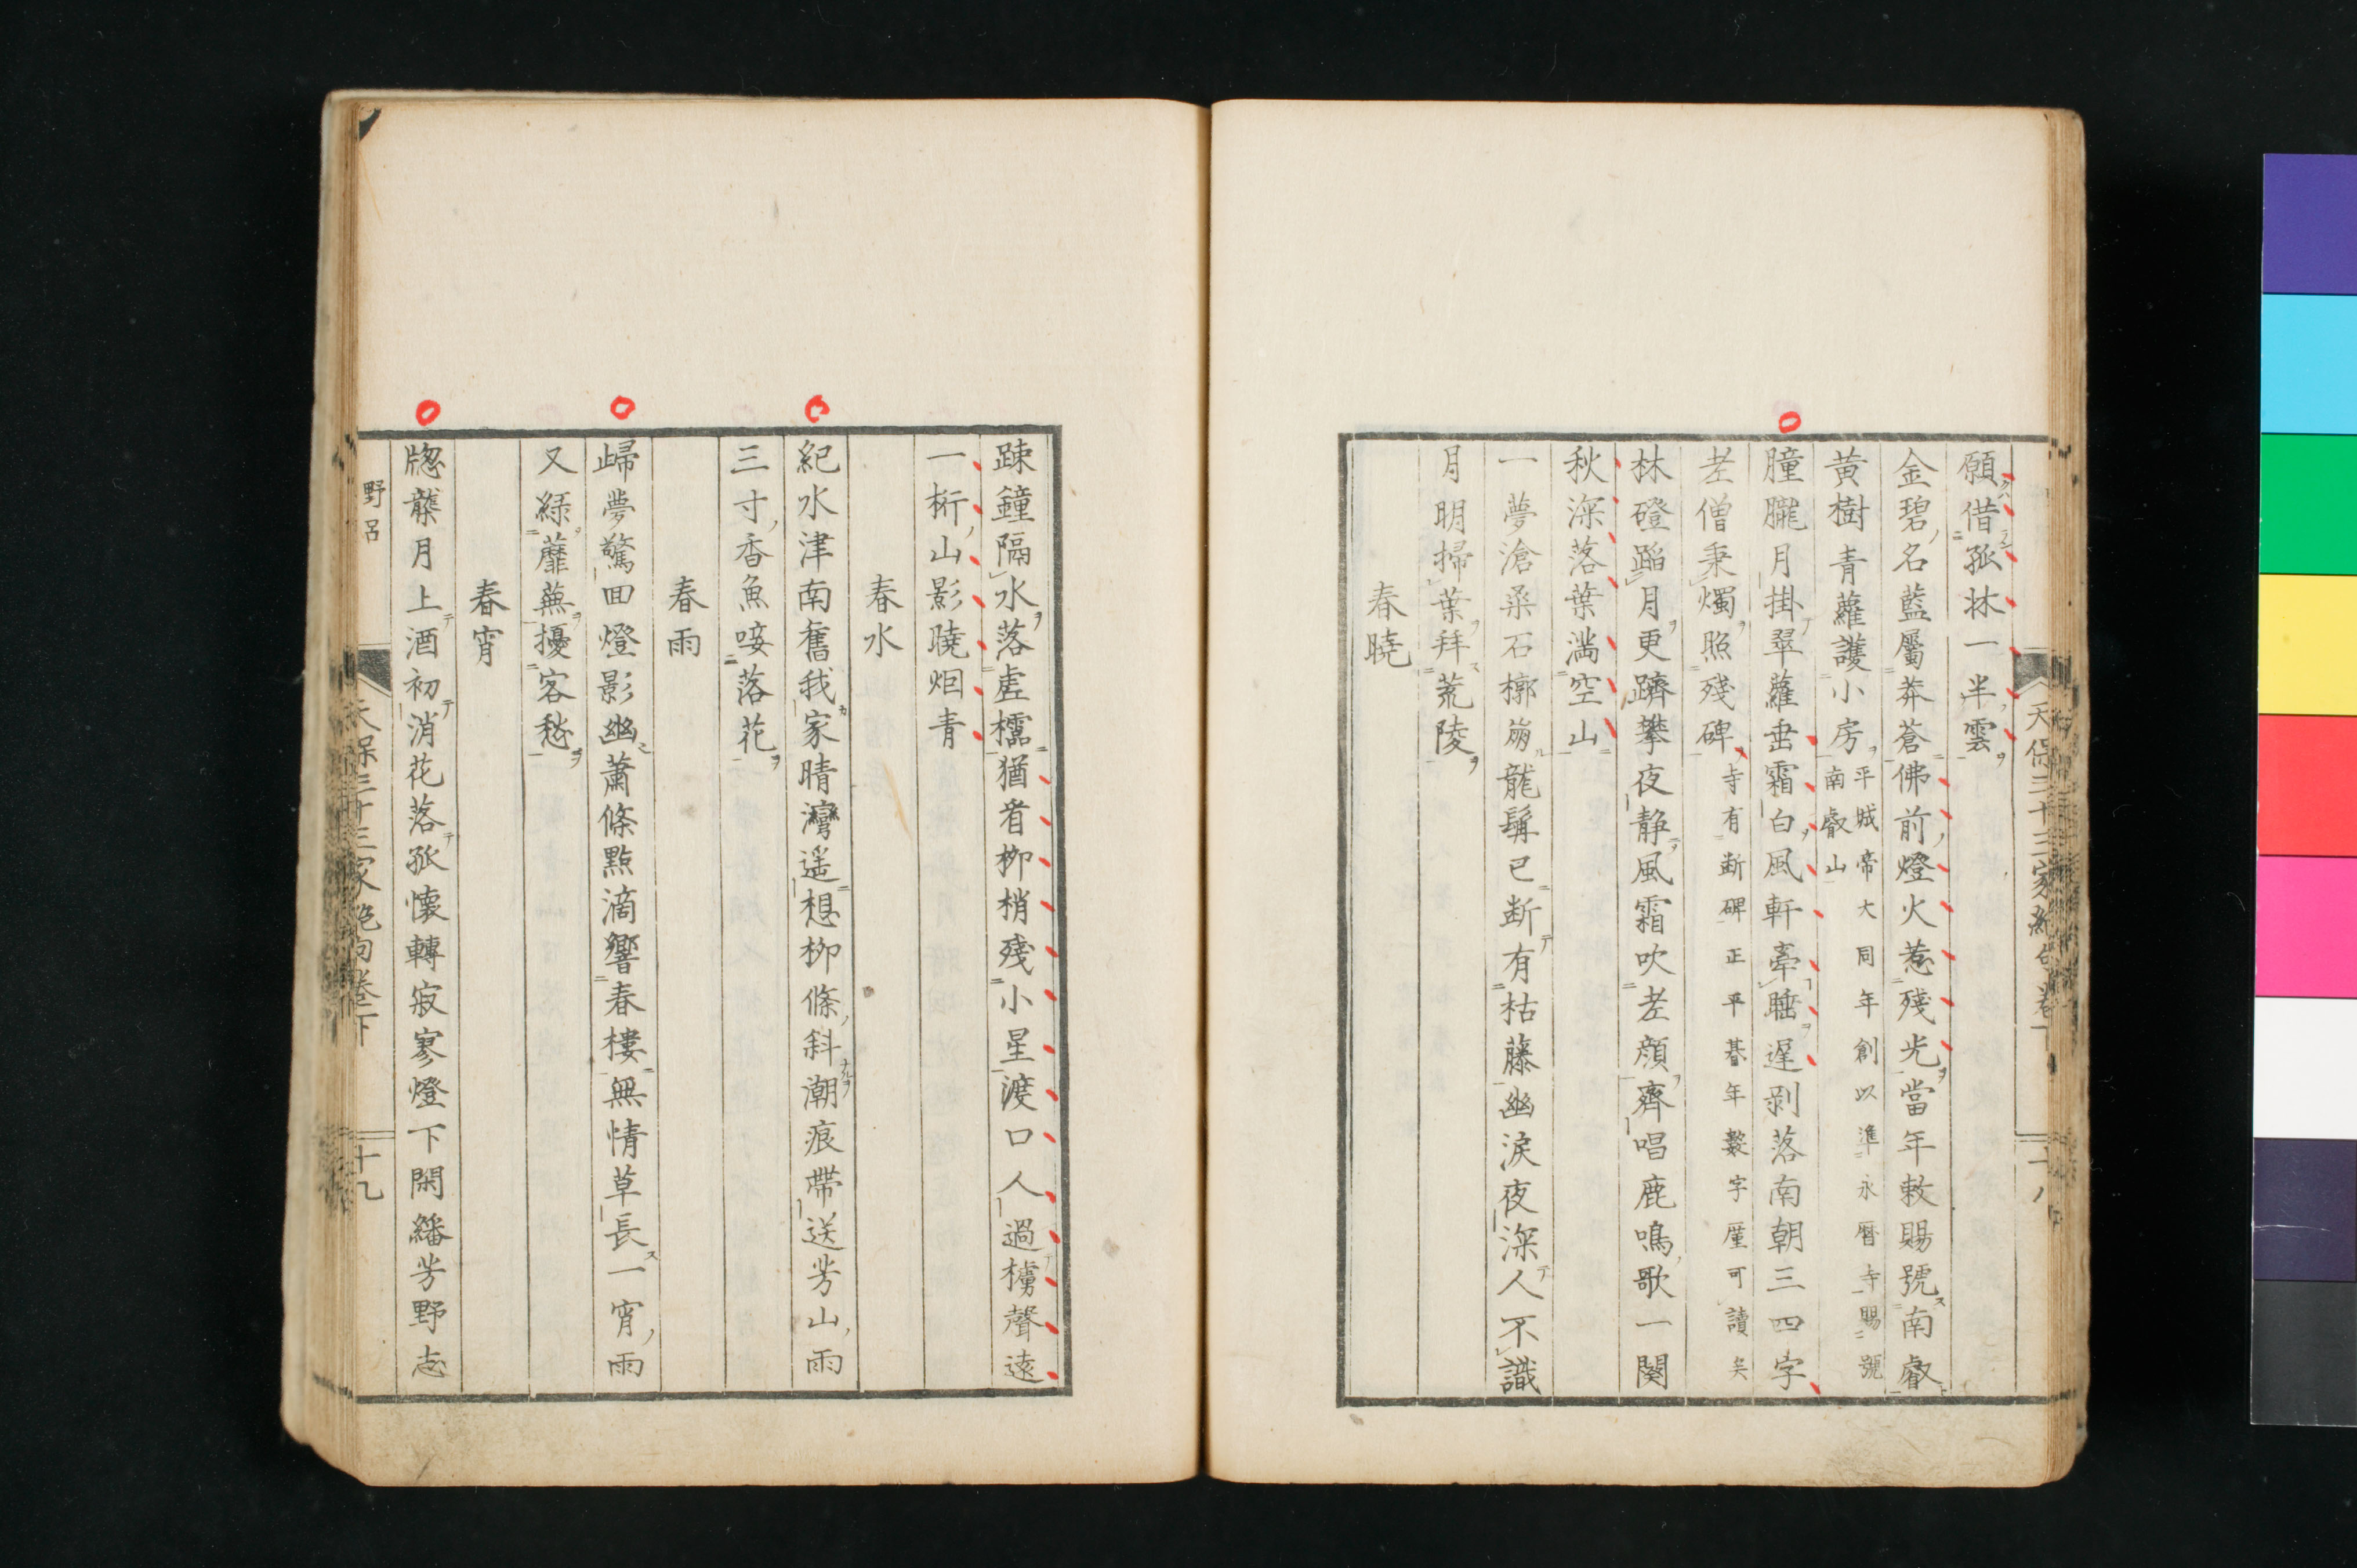 願借孤牀一半雲
金碧名藍屬莽蒼佛前燈火惹殘光當年敕賜號南叡
黃樹青蘿護小房平城帝大同年創以準永曆寺賜號
南叡山
朣朧月掛翠蘿垂霜白風軒牽睡遲剥落南朝三四字
老僧秉燭照殘碑寺有断碑正平暮年數字厪可讀矣
林磴蹈月更躋攀夜静風霜吹老顔齊唱鹿鳴歌一闋
秋深落葉満空山
一夢滄桑石槨崩龍髯已断有枯藤幽淚夜深人不識
月明掃葉拜荒陵
春曉
天保三十三家絶句卷下
十八
疎鐘隔水落虛櫺猶看柳梢殘小星渡口人過櫓聲遠
一桁山影曉烟青
春水
紀水津南舊我家晴灣遥想柳條斜潮痕帶送芳山雨
三寸香魚唼落花
春雨
歸夢驚回燈影幽蕭條點滴響春樓無情草長一宵雨
又綠蘼蕪擾客愁
春宵
牕龍月上酒初消花落孤懷轉寂寥燈下閑繙芳野志
野呂
天保三十三家絶句卷下
十九